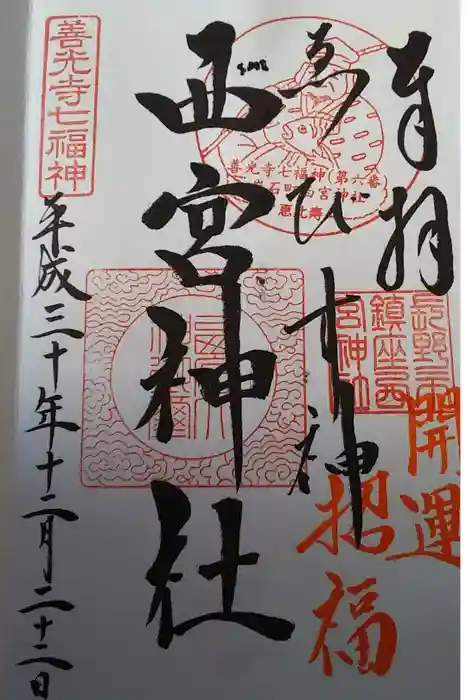 奉拝
開運
招福
ゑびす神
西宮神社
善光寺七福神(第六番
岩石町西宮神社
恵比寿
長野市
鎮座西
宮神社
善光寺七福神
平成三十年十二月二十二日